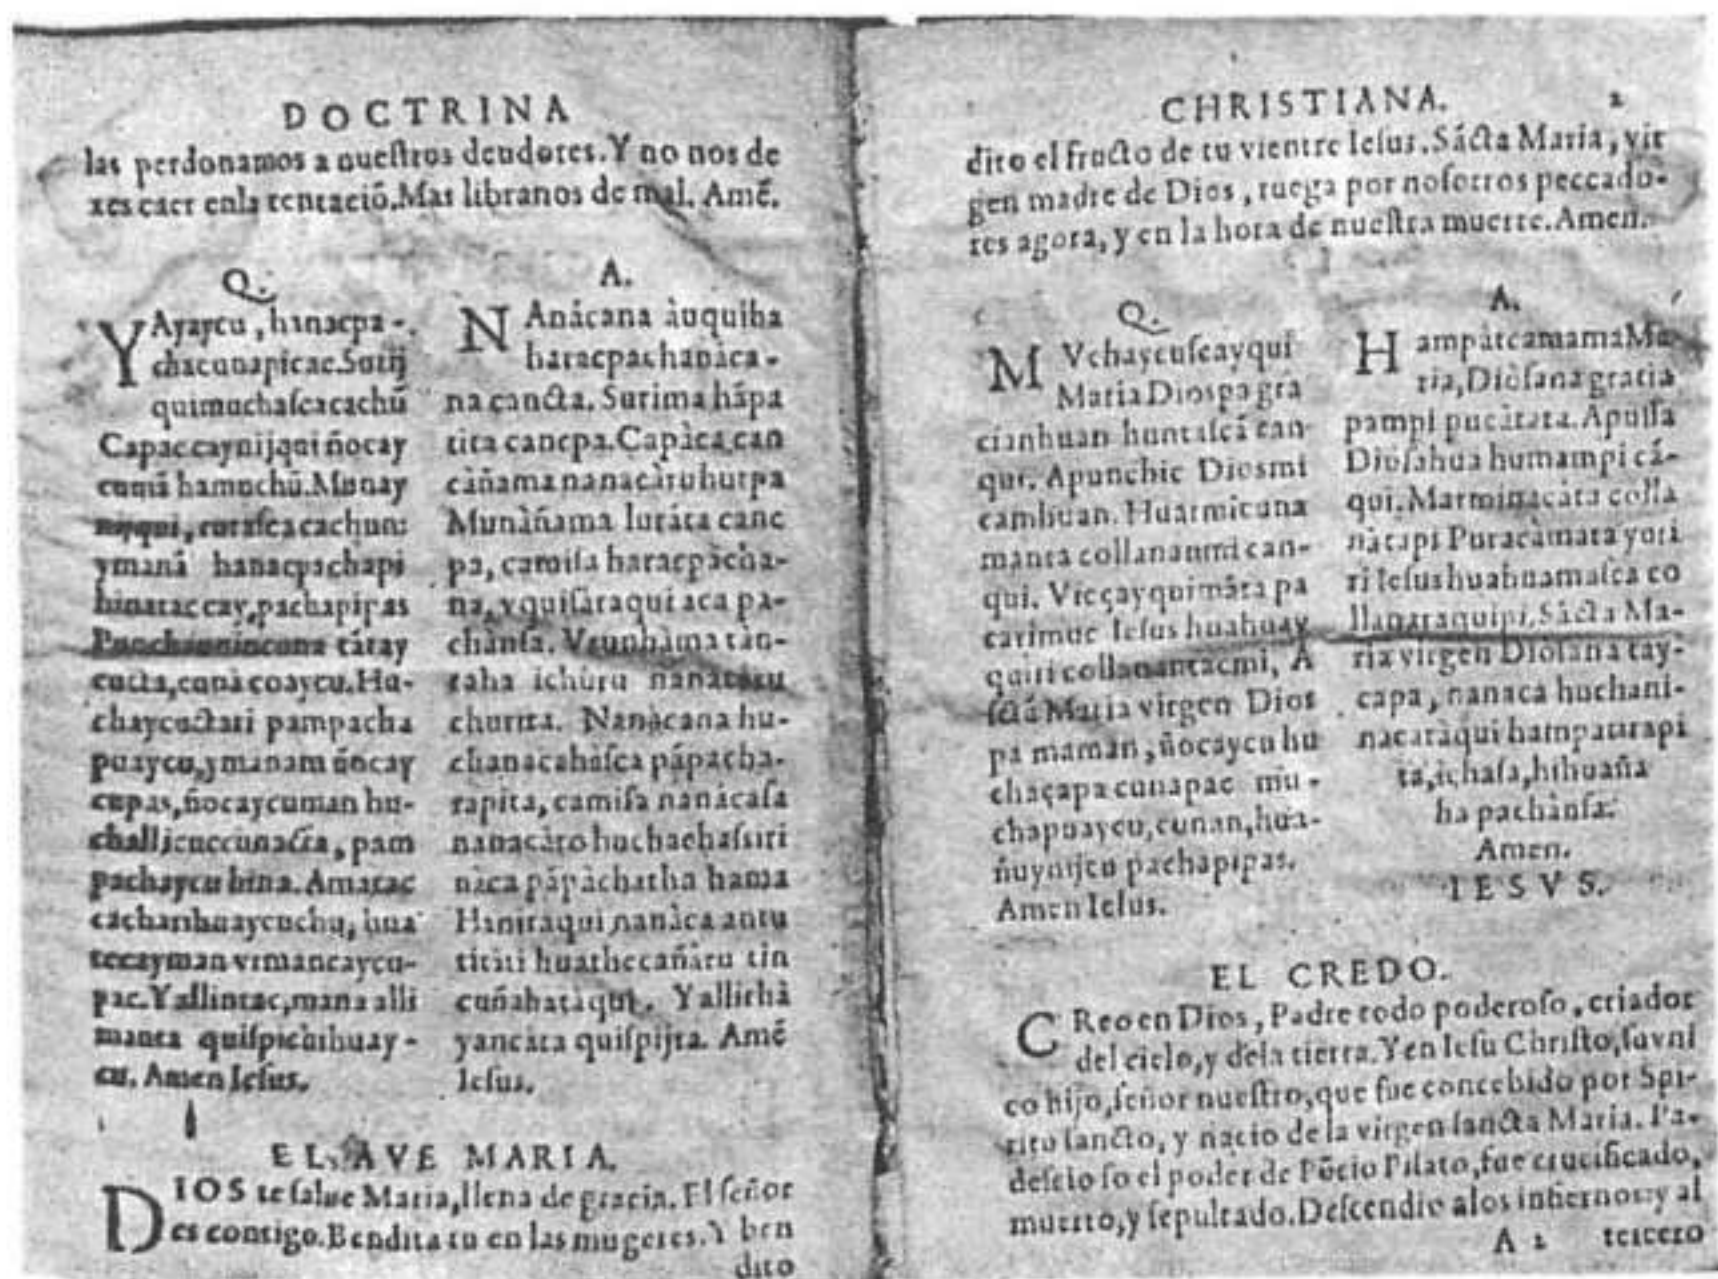 DOCTRINA
las perdonamos a nueſtros deudores. Y no nos de
xes caer enla tentaciõ. Mas libranos de mal. Amẽ.
Q.
YAyaycu, hanacpa-
chacunapicac. Sutij
quimuchaſcacachũ
Capaccaynijqui ñocay
cumã hamuchũ. Munay
nijqui, ruraſcacachun:
ymanã hanacpachapi
hinatac cay, pachapipas
Punchaunincuna tãtay
cucta, cunàcoaycu. Hu-
chaycuctari pampacha
puaycu, ymanam ñocay
cupas, ñocaycuman hu-
challicuccunacta, pam
pachaycu hina. Amatac
cacharihuaycuchu, hua
tecayman vrmancaycu-
pac. Yallintac, mana alli
manta quiſpichihuay-
cu. Amen Ieſus.
A.
NAnácana àuquiha
haracpachanàca-
na cancta. Sutima hãpa
tita cancpa. Capàca, can
càñama nanacàru hutpa
Munàñama luráta canc
pa, camiſa haracpàcha-
na, yquiſáraqui aca pa-
chànſa. Vrunhàma tàn-
taha ichùru nanacáru
churita. Nanàcana hu-
chanacahàſca pápacha-
rapita, camiſa nanácaſa
nanacàro huchachaſiri
nàca pápàchatha hama
Haniraqui nanàca antu
titàti huathecañàru tin
cuñahatàqui. Yallichà
yancáta quiſpijta. Amẽ
Ieſus.
EL AVE MARIA.
DIOS te ſalue Maria, llena de gracia. El ſeñor
es contigo. Bendita tu en las mugeres. Y ben
dito
CHRISTIANA. 2
dito el fructo de tu vientre Ieſus. Sácta Maria, vir
gen madre de Dios, ruega por noſotros peccado-
res agora, y en la hora de nueſtra muerte. Amen.
Q.
MVchaycuſcayqui
Maria Diospa gra
cianhuan huntaſcã can
qui. Apunchic Diosmi
camhuan. Huarmicuna
manta collananmi can-
qui. Vicçayquimãta pa
carimuc Ieſus huahuay
quiri collanantacmi, A
ſctã Maria virgen Dios
pa maman, ñocaycu hu
chaçapacunapac mu-
chapuaycu, cunan, hua-
ñuynijcu pachapipas.
Amen Ieſus.
A.
HampàtcamamaMa-
ria, Diòſana gracia
pampi pucàtata. Apuſſa
Dioſahua humampi cá-
qui. Marminacàta colla
nàtapi Puracàmata yuri
ri Ieſus huahuamaſca co
llanaraquipi. Sácta Ma-
ria virgen Dioſana tay-
capa, nanaca huchani-
nacatàqui hampatirapi
ta, ichaſa, hihuaña
ha pachànſa.
Amen.
IESVS.
EL CREDO.
CReo en Dios, Padre todo poderoſo, criador
del cielo, y dela tierra. Y en Ieſu Chriſto, ſu vni
co hijo, ſeñor nueſtro, que fue concebido por Spi-
ritu ſancto, y nacio de la virgen ſancta Maria. Pa-
deſcio ſo el poder de Põcio Pilato, fue crucificado,
muerto, y ſepultado. Deſcendio alos infiernos: y al
A 2 tercero